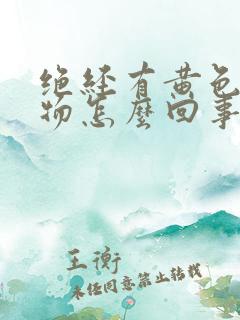 绝经有黄色
物怎麽回事
王衡
未经同意禁止转载